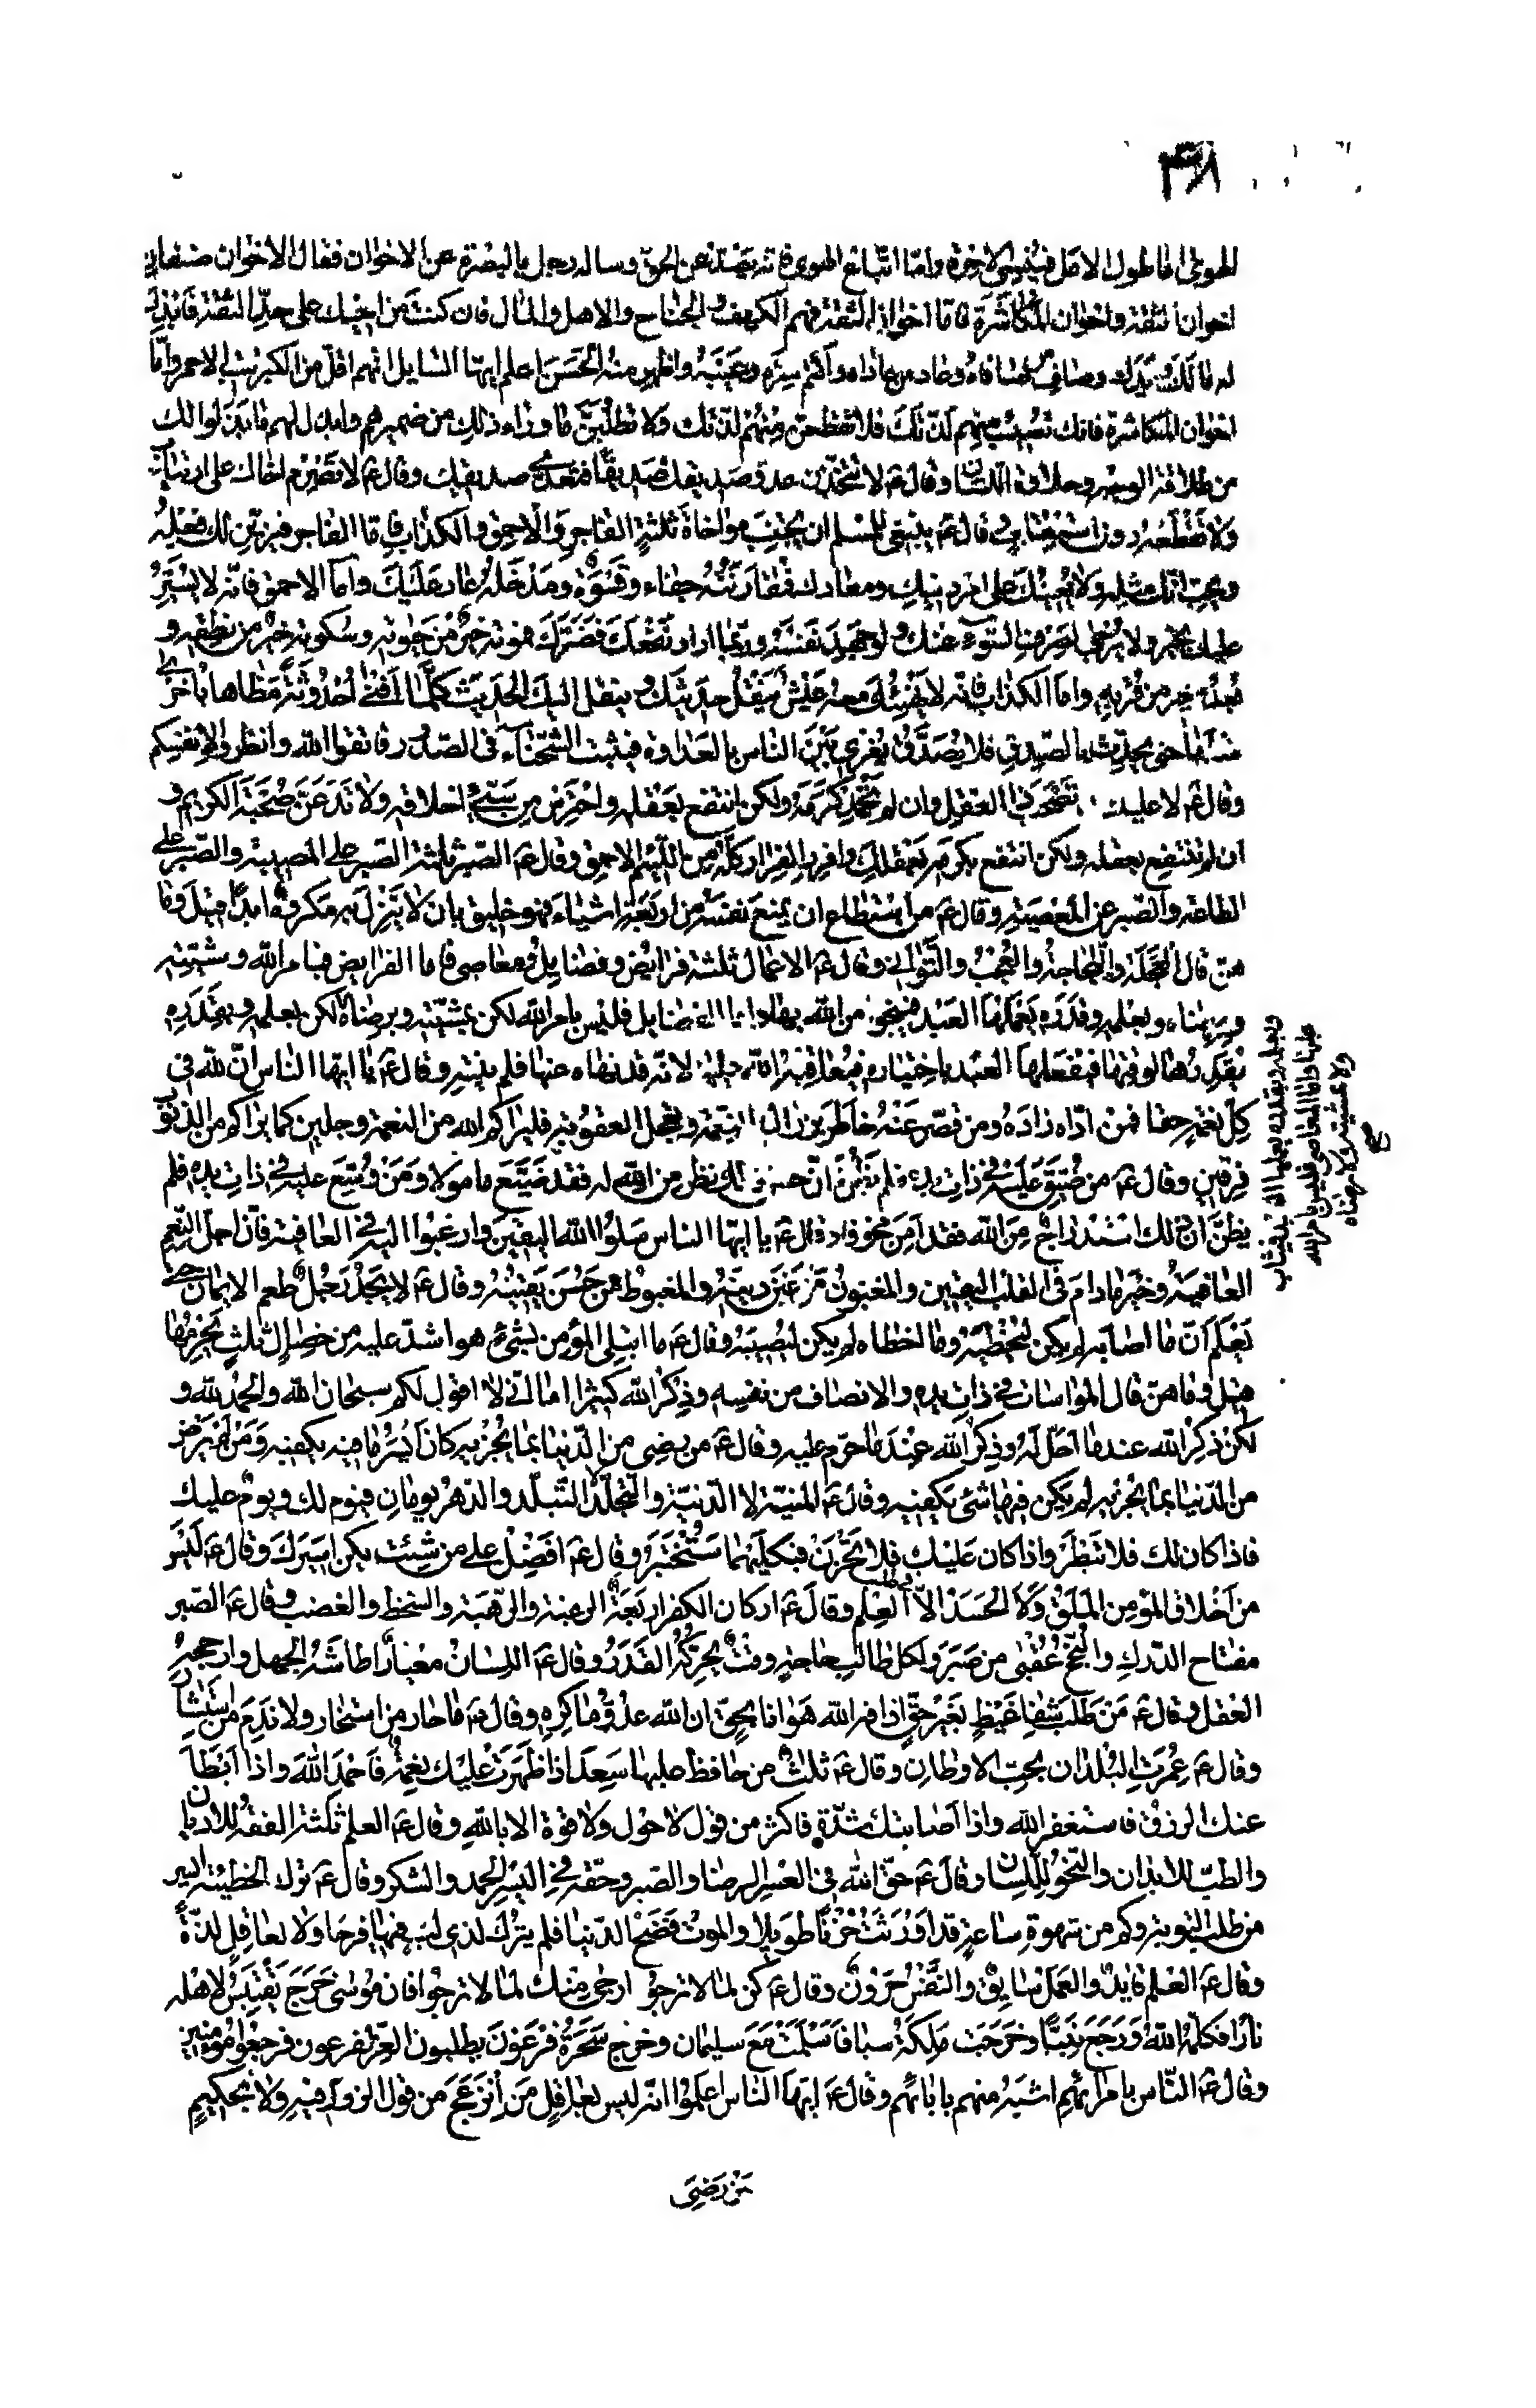 ۴۸
الهوى اما طول الامل فينسى الاخرة واما اتباع الهوى فانه يصد عن الحق وساله رجل بالبصرة عن الاخوان فقال الاخوان صنفان
اخوان الثقة واخوان المكاشرة فاما اخوان الثقة فهم الكهف والجناح والاهل والمال فان كنت من اخيك على حد الثقة فابذل
له مالك ويدك وصاف من صافاه وعاد من عاداه واكتم سره وعيبه واظهر منه الحسن اعلم ايها السايل انهم اقل من الكبريت الاحمر واما
اخوان المكاشرة فانك تصيب منهم لذتك فلا تقطعن منهم لذتك ولا تطلبن ما وراء ذلك من ضميرهم وابذل لهم ما بذلوا لك
من طلاقة الوجه وحلاوة اللسان وقال ع لا تتخذن عدو صديقك صديقا فتعدى صديقك وقال ع لا تصرم اخاك على ارتياب
ولا تقطعه دون استعتاب وقال ع ينبغى للمسلم ان يجتنب مواخاة ثلثة الفاجر والاحمق والكذاب فاما الفاجر فيزين لك فعله
ويحب انك مثله ولا يعينك على امر دينك ومعادك فمقارنته جفاء وقسوة ومدخله عار عليك واما الاحمق فانه لا يشير
عليك بخير ولا يرجى لصرف السوء عنك ولو جهد نفسه وربما اراد نفعك فضرك فموته خير من حيوته وسكوته خير من نطقه و
بعده خير من قربه واما الكذاب فانه لا يهنئك معه عيش ينقل حديثك وينقل اليك الحديث كلما افنى احدوثة مطاها باخرى
مثلها حتى يحدث بالصدق فلا يصدق يغرى بين الناس بالعداوة فيثبت الشحناء فى الصدور فاتقوا الله وانظروا لانفسكم
وقال ع لا عليك ان تصحب ذا العقل وان لم تحمد كرمه ولكن انتفع بعقله واحترس من سيئ اخلاقه ولا تدعن صحبة الكريم و
ان لم تنتفع بعقله ولكن انتفع بكرمه بعقلك وافرر الفرار كله من اللئيم الاحمق وقال ع الصبر ثلثة الصبر على المصيبة والصبر على
الطاعة والصبر عن المعصية وقال ع من استطاع ان يمنع نفسه من اربعة اشياء فهو خليق بان لا ينزل به مكروه ابدا قيل وما
هن قال العجلة واللجاجة والعجب والتوانى وقال ع الاعمال ثلثة فرايض وفضايل ومعاصى فاما الفرايض فبامر الله ومشيته
وبرضاه وبعلمه وقدره يعملها العبد فينجو من الله بها واما الفضايل فليس بامر الله لكن بمشيته وبرضاه لكن بعلمه وبقدره
يقدرها لوقتها فيفعلها العبد باختياره فيعاقبه الله عليها لانه قد نهاه عنها فلم ينته وقال ع يا ايها الناس ان لله فى
كل نعمة حقا فمن اداه زاده ومن قصر عنه خاطر بزوال النعمة وتعجل العقوبة فليراكم الله من النعمة وجلين كما يراكم من الذنوب
فرقين وقال ع من ضيق عليه فى ذات يده فلم يظن ان حسن ذلك نظر من الله له فقد ضيع مامولا ومن وسع عليه فى ذات يده فلم
يظن ان ذلك استدراج من الله فقد امن مخوفا وقال ع يا ايها الناس سلوا الله اليقين وارغبوا اليه فى العافية فان اجل النعم
العافية وخير ما دام فى القلب اليقين والمغبون من غبن دينه والمغبوط من حسن يقينه وقال ع لا يجد رجل طعم الايمان حتى
يعلم ان ما اصابه لم يكن ليخطئه وما اخطاه لم يكن ليصيبه وقال ع ما ابتلى المؤمن بشئ هو اشد عليه من خصال ثلث يحرمها
قيل وما هن قال المواسات فى ذات يده والانصاف من نفسه وذكر الله كثيرا اما انى لا اقول لكم سبحان الله والحمد لله و
لكن ذكر الله عندما احل له وذكر الله عندما حرم عليه وقال ع من رضى من الدنيا بما يجزيه كان ايسر ما فيه يكفيه ومن لم يرض
من الدنيا بما يجزيه لم يكن فيها شئ يكفيه وقال ع المنية لا الدنية والتجلد لا التبلد والدهر يومان فيوم لك ويوم عليك
فاذا كان لك فلا تبطر واذا كان عليك فلا تحزن فبكليهما ستختبر وقال ع افضل على من شئت يكن اسيرك وقال ع ليس
من اخلاق المؤمن الملق ولا الحسد الا فى طلب العلم وقال ع اركان الكفر اربعة الرغبة والرهبة والسخط والغضب وقال ع الصبر
مفتاح الدرك والنجح عقبى من صبر ولكل طالب حاجة وقت يحركه القدر وقال ع اللسان معيار اطاشه الجهل وارجحه
العقل وقال ع من طلب شفا غيظ بغير حق اذاقه الله هوانا بحق ان الله عدو ما كره وقال ع ما حار من استخار ولا ندم من استشار
وقال ع عمرت البلدان بحب الاوطان وقال ع ثلث من حافظ عليها سعد اذا ظهرت عليك نعمة فاحمد الله واذا ابطا
عنك الرزق فاستغفر الله واذا اصابتك شدة فاكثر من قول لا حول ولا قوة الا بالله وقال ع العلم ثلثة الفقه للاديان
والطب للابدان والنحو للسان وقال ع حق الله فى العسر الرضا والصبر وحقه فى اليسر الحمد والشكر وقال ع ترك الخطيئة ايسر
من طلب التوبة وكم من شهوة ساعة قد اورثت حزنا طويلا والموت فضح الدنيا فلم يترك لذى لب فيها فرحا ولا لعاقل لذة
وقال ع العلم قايد والعمل سايق والنفس حرون وقال ع كن لما لا ترجو ارجى منك لما لا ترجوا فان موسى خرج يقتبس لاهله
نارا فكلمه الله ورجع نبيا وخرجت ملكة سبا فاسلمت مع سليمان وخرج سحرة فرعون يطلبون العز لفرعون فرجعوا مؤمنين
وقال ع الناس بامرائهم اشبه منهم بابائهم وقال ع ايها الناس اعلموا انه ليس بعاقل من انزعج من قول الزور فيه ولا بحكيم
من رضى
وبعلمه وبقدره يعملها العبد فيثاب
عليها واما المعاصى فليس بامر الله
ولا بمشيته ولا برضاه